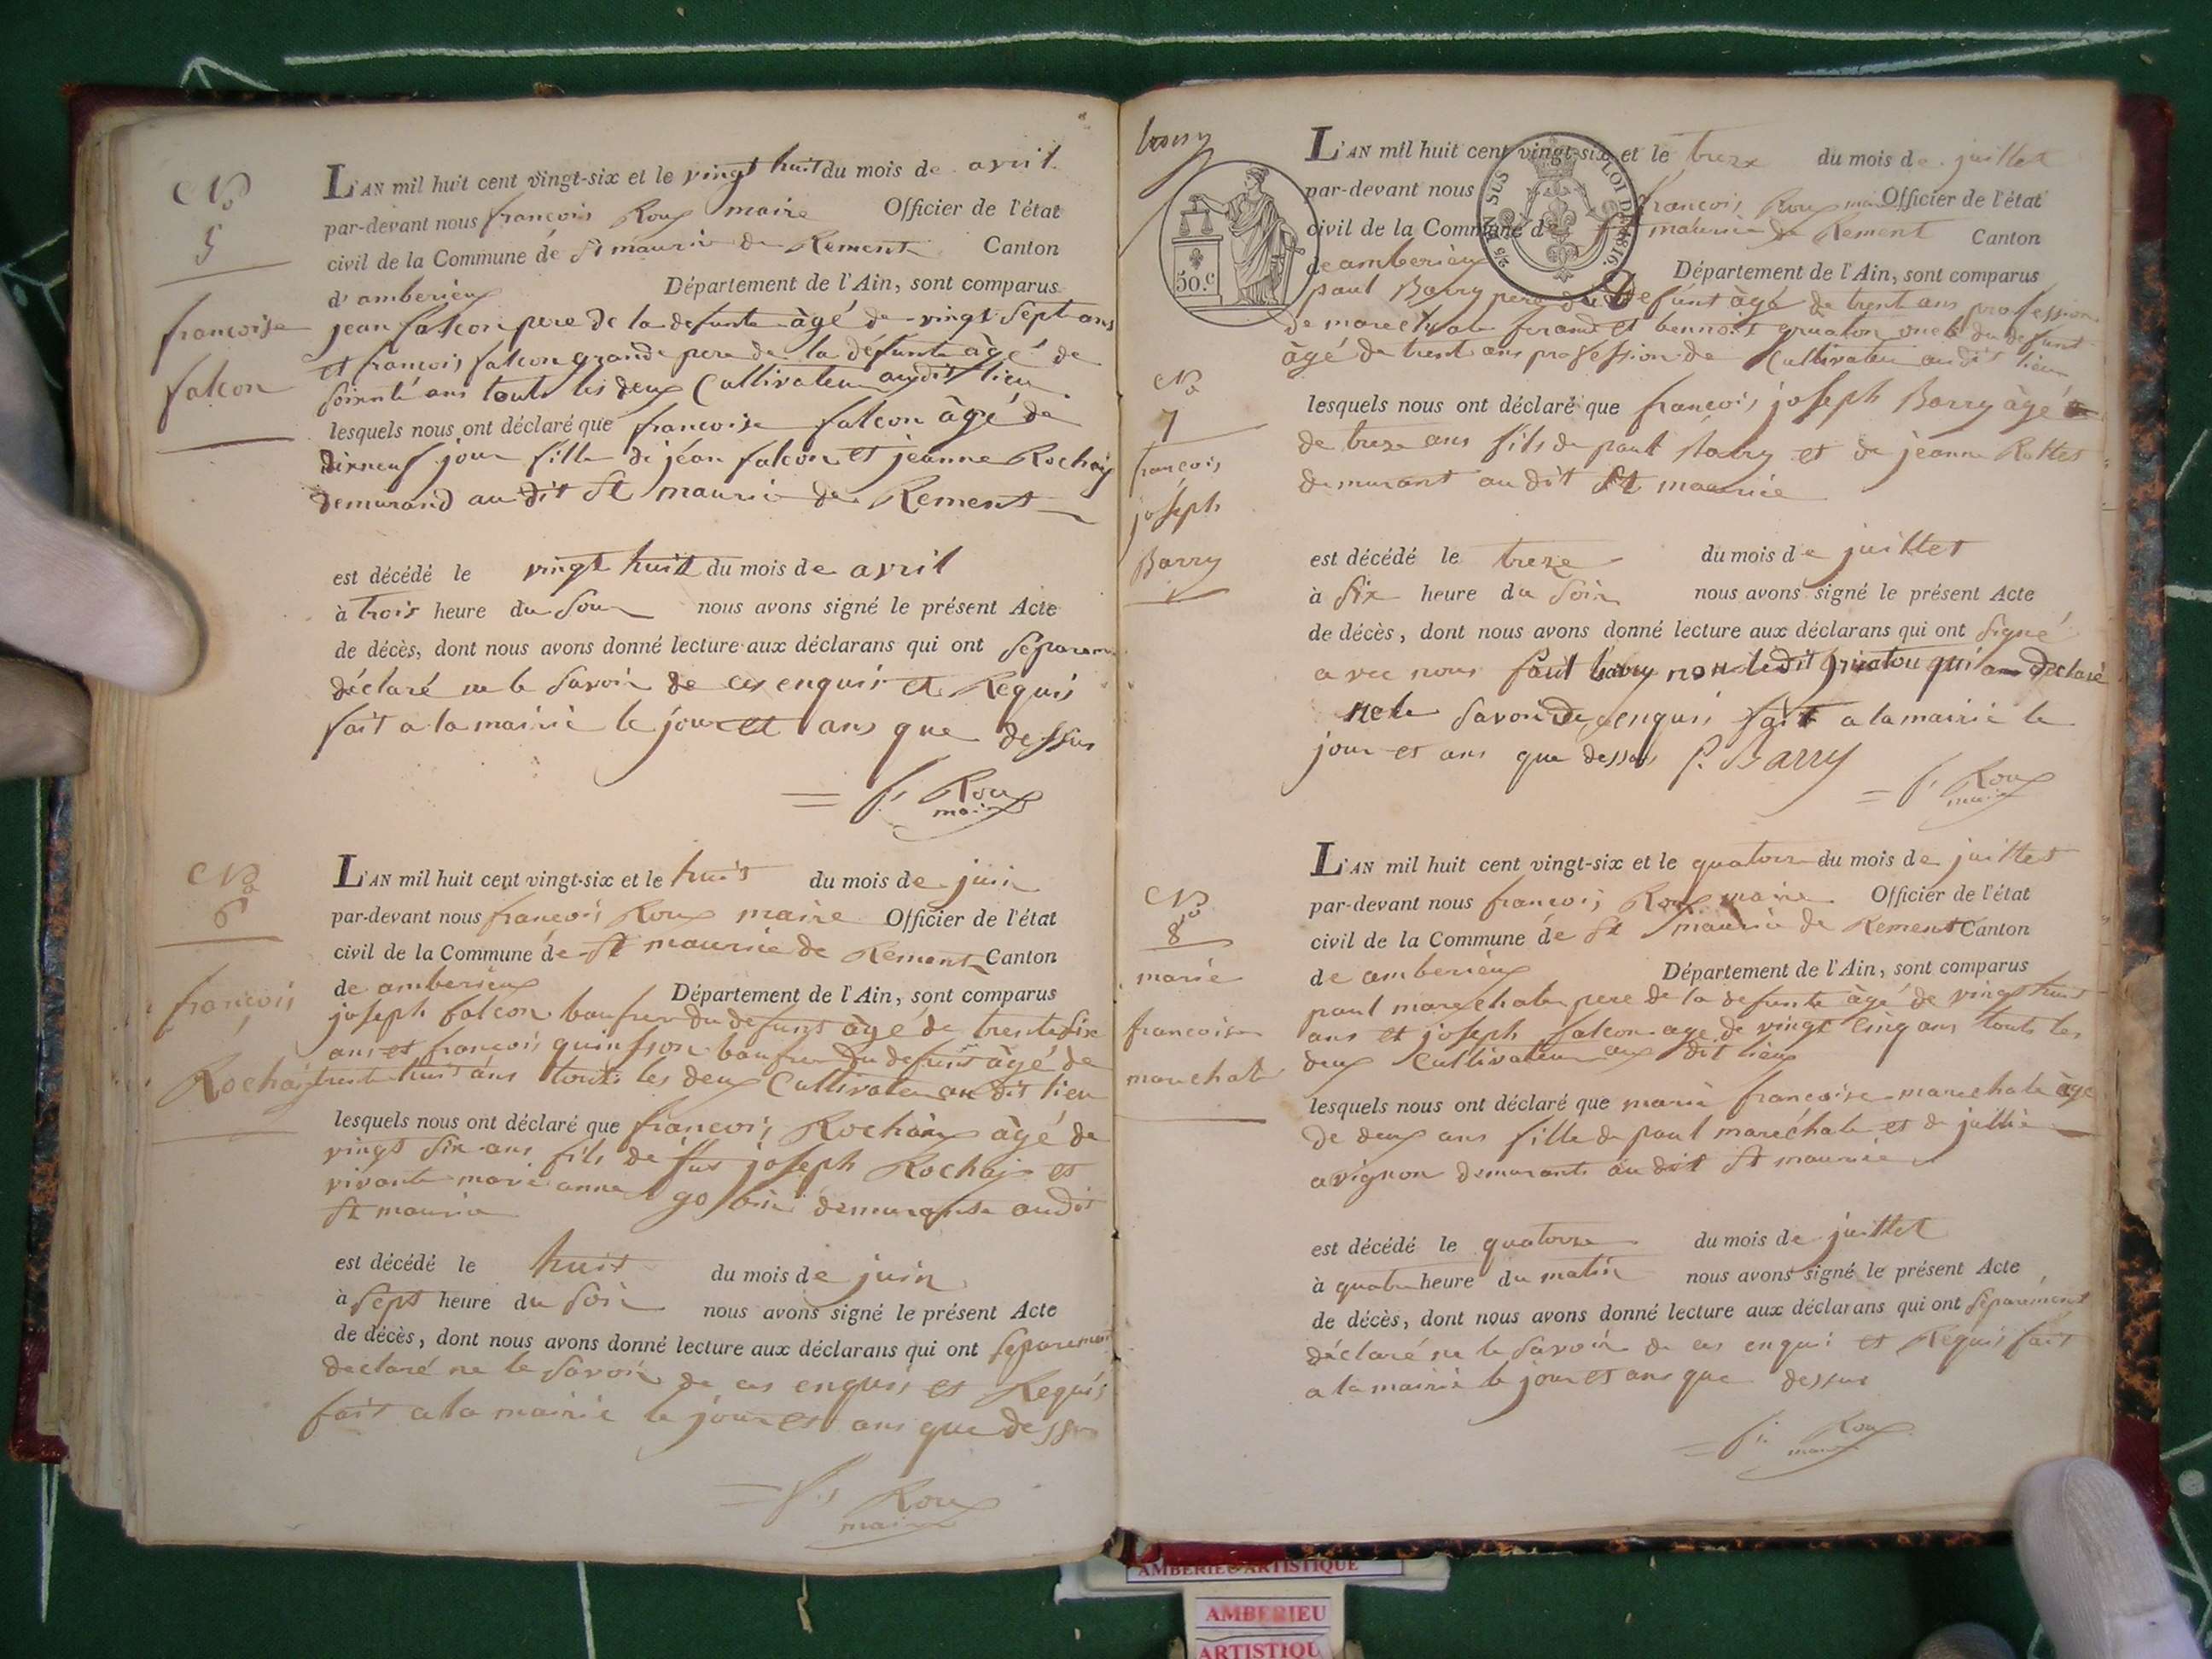 No
5
françoise
falcon
L'AN mil huit cent vingt-six et le vingt huit du mois de avril
par-devant nous françois Roux maire Officier de l'état
civil de la Commune de St maurice de Rement Canton
d'amberieux Département de l'Ain, sont comparus
jean falcon pere de la defunte âgé de vingt sept ans
et francois falcon grand pere de la défunte âgé de
soixente ans touts les deux Cultivateur audit lieu
lesquels nous ont déclaré que francoise falcon âgé de
dixneuf jour fille de jéan falcon et jeanne Rochay
demurand au dit St maurice de Rement
est décédé le vingt huit du mois de avril
à trois heure du soir nous avons signé le présent Acte
de décès, dont nous avons donné lecture aux déclarans qui ont séparem
déclaré ne le savoir de ces enquis et Requis
fait a la mairie le jour et ans que dessus
= fs Roux
maire
No
6
francois
Rochay
L'AN mil huit cent vingt-six et le huit du mois de juin
par-devant nous françois Roux maire Officier de l'état
civil de la Commune de St maurice de Rement Canton
de amberieux Département de l'Ain, sont comparus
joseph falcon baufrer du defunt âgé de trente six
ans et francois quinsson baufrer du defunt âgé de
trente huit ans touts les deux Cultivateur au dit lieu
lesquels nous ont déclaré que francois Rochaix âgé de
vingt six ans fils de fus joseph Rochaj et
vivante marie anne demurante audit
St maurice
est décédé le huit du mois de juin
à sept heure du soir nous avons signé le présent Acte
de décès, dont nous avons donné lecture aux déclarans qui ont séparement
declaré ne le savoir de ces enquis et Requis
fait a la mairie le jour et ans que dessus
= fs Roux
maire
50.c
EN SUS
LOI DE 1816.
L'AN mil huit cent vingt-six et le treze du mois de juillet
par-devant nous francois Roux maire Officier de l'état
civil de la Commune de St maurice de Rement Canton
de amberieux Département de l'Ain, sont comparus
paul Barry pere du defunt âgé de trent ans profession
de marechale ferand et bennoit gruaton oncle du defunt
âgé de trent ans profession de Cultivateur audit lieu
No
7
françois
joseph
Barry
lesquels nous ont déclaré que francois joseph Barry âgé
de treze ans fils de paul Barry et de jeanne Rottet
demurant au dit St maurice
est décédé le treze du mois de juillet
à six heure du soir nous avons signé le présent Acte
de décès, dont nous avons donné lecture aux déclarans qui ont signé
avec nous paul barry non ledit gruaton qui a declaré
ne le savoir de enquis fait a la mairie le
jour et ans que dessus P. Barry
= fs Roux
maire
No
8
marie
francoise
marechale
L'AN mil huit cent vingt-six et le quatorze du mois de juillet
par-devant nous francois Roux maire Officier de l'état
civil de la Commune de St maurice de Rement Canton
de amberieux Département de l'Ain, sont comparus
paul marechale pere de la defunte âgé de vingt huit
ans et joseph falcon age de vingt cinq ans touts les
deux Cultivateur au dit lieux
lesquels nous ont déclaré que marie francoise marechale âge
de deux ans fille de paul maréchale et de jullie
avignon demurant au dit St maurice
est décédé le quatorze du mois de juillet
à quatre heure du matin nous avons signé le présent Acte
de décès, dont nous avons donné lecture aux déclarans qui ont séparément
déclaré ne le savoir de ces enqui et Requis fait
a la mairie le jour et ans que dessus
= fs Roux
maire
AMBERIEU ARTISTIQUE
AMBERIEU
ARTISTIQU